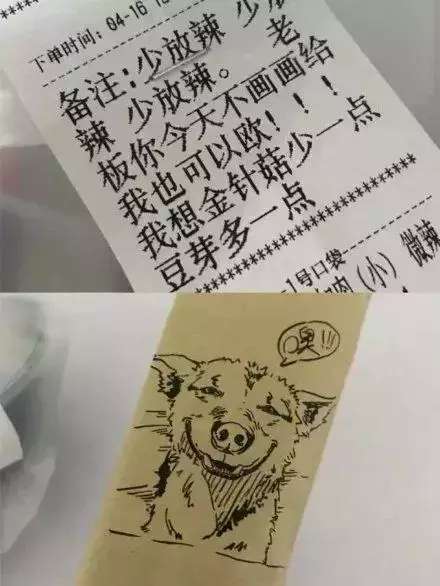 下单时间：04-16 1
备注：少放辣 少放
辣 少放辣。 老
板你今天不画画给
我也可以欧！！！
我想金针菇少一点
豆芽多一点
1号口袋
肉（小） 微辣
噢!!!